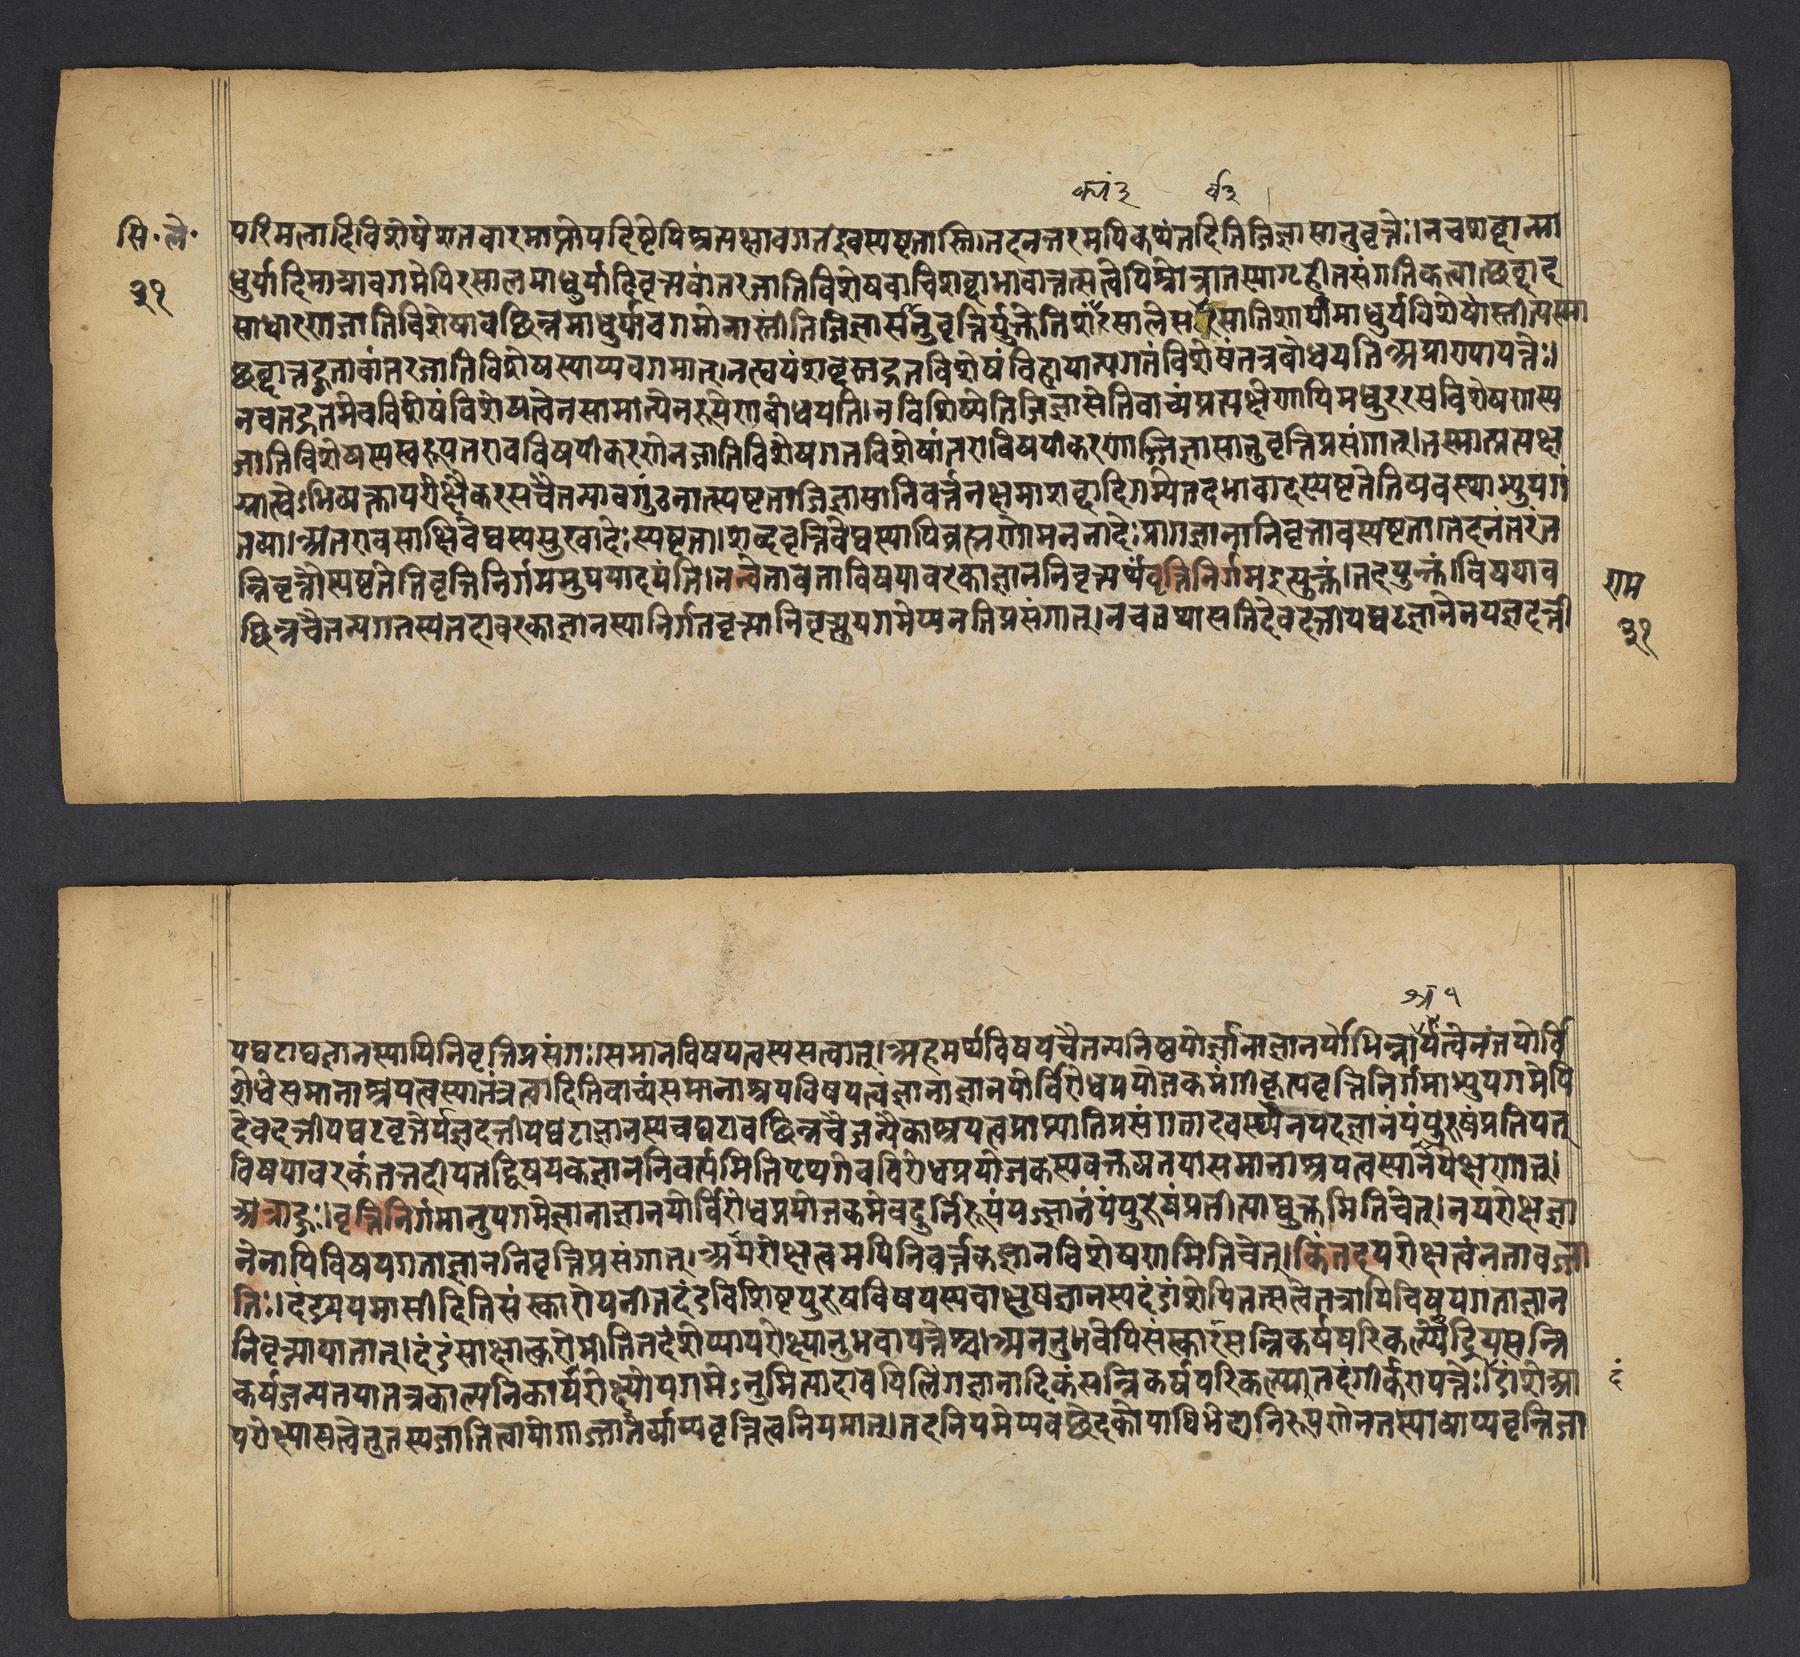 कथं ३ र्थ ३
सि. ले. परिमलादिविशेषे शतवारमाप्तोपदिष्टेपि प्रत्यक्षावगत इव स्पष्टता नास्ति । तदनन्तरमपि कथं तदिति जिज्ञासानुवृत्तेः । न च शब्दान्मा
३१ धुर्यादिमात्रावगमेपि रसालमाधुर्यादिवृत्त्यवांतरजातिविशेषवाचिशब्दाभावात्तत्सत्वेपि श्रोत्रा तस्यागृहीतसंगतिकत्वाच्छब्दाद
साधारणजातिविशेषावच्छिन्नमाधुर्यावगमो नास्तीति जिज्ञासानुवृत्तिर्युक्तेति शं रसाले सर्वातिशायी माधुर्यविशेषोस्तीत्यस्मा
च्छब्दात्तद्गतावांतरजातिविशेषस्याप्यवगमात् । न त्वयं शब्दस्तद्गतविशेषं विहायान्यगतं विशेषं तत्र बोधयति अप्रामाण्यापत्तेः ।
न च तद्गतमेव विशेषं विशेषत्वेन सामान्येन रूपेण बोधयति । न विशिष्येति जिज्ञासेति वाच्यं प्रत्यक्षेणापि मधुररसविशेषणस्य
जातिविशेषस्य स्वरूपत एव विषयीकरणेन जातिविशेषगतविशेषांतराविषयीकरणाज्जिज्ञासानुवृत्तिप्रसंगात् । तस्मात्प्रत्यक्ष
ग्राह्येऽभिव्यक्तापरोक्षैकरसचैतन्यावगुंठनात्स्पष्टता जिज्ञासानिवर्त्तनक्षमा शब्दादिगम्ये तदभावादस्पष्टतेति व्यवस्थाभ्युपगं
तव्या । अत एव साक्षिवेद्यस्य सुखादेः स्पष्टता । शाब्दवृत्तिवेद्यस्यापि ब्रह्मणो मननादेः प्रागज्ञानानिवृत्तावस्पष्टता । तदनंतरं त
न्निवृत्तौ स्पष्टतेति वृत्तिनिर्गममुपपादयंति । नन्वेतावता विषयावरकाज्ञाननिवृत्त्यर्थं वृत्तिनिर्गम इत्युक्तं । तदयुक्तं । विषयाव राम
च्छिन्नचैतन्यगतस्य तदावरकाज्ञानस्यानिर्गतवृत्त्या निवृत्त्युपगमेप्यनतिप्रसंगात् । न च तथा सति देवदत्तीयघटज्ञानेन यज्ञदत्ती ३१
श्र १
यघटाघज्ञानस्यापि निवृत्तिप्रसंगः । समानविषयत्वस्य सत्वात् । अहमर्थविषयचैतन्यनिष्ठयोर्ज्ञानाज्ञानयोर्भिन्नार्यत्वेन तयोर्वि
रोधे समानाश्रयत्वस्यातंत्रत्वादिति वाच्यं समानाश्रयविषयत्वं ज्ञानाज्ञानयोर्विरोधप्रयोजकमंगीकृत्य वृत्तिनिर्गमाभ्युपगमेपि
देवदत्तीयघटवृत्तेर्यज्ञदत्तीयघटाज्ञानस्य च घटावच्छिन्नचैतन्यैकाश्रयत्वप्राप्त्यातिप्रसंगतादवस्थ्येन यदज्ञानं यं पुरुषं प्रति यत्
विषयावरकं तत्तदीयतद्विषयकज्ञाननिवर्त्यमिति पृथगेव विरोधप्रयोजकस्य वक्तव्यतया समानाश्रयत्वस्यानपेक्षणात् ।
अत्राहुः । वृत्तिनिर्गमानुपगमे ज्ञानाज्ञानयोर्विरोधप्रयोजकमेव दुर्निरूपं यदज्ञानं यं पुरुषं प्रतीत्याद्युक्तमिति चेत् । न परोक्षज्ञा
नेनापि विषयगताज्ञाननिवृत्तिप्रसंगात् । अपरोक्षत्वमपि निवर्त्तकज्ञानविशेषणमिति चेत् । किं तदपरोक्षत्वं न तावज्जा
तिः । दंड्ययमासीदिति संस्कारोपनीतदंडविशिष्टपुरुषविषयस्य चाक्षुषज्ञानस्य दंडांशेपि तत्सत्वे तत्रापि विषयगताज्ञान
निवृत्त्यापातात् । दंडं साक्षात्करोमीति तदंशेप्यापरोक्ष्यानुभवापत्तेश्च । अननुभवेपि संस्कारं सन्निकर्षं परिकल्प्येंद्रियसन्नि
कर्षजन्यतया तत्र काल्पनिकापरोक्ष्योपगमेऽनुमित्यादावपि लिंगज्ञानादिकं सन्निकर्षं परिकल्प्य तदंगीकरापत्तेः । डांशे आ दं
परोक्ष्यासत्वे तु तस्य जातित्वायोगाज्जातेर्व्याप्यवृत्तित्वनियमात् । तदनियमेप्यवच्छेदकोपाधिभेदानिरूपणेन तस्याव्याप्यवृत्तिजा